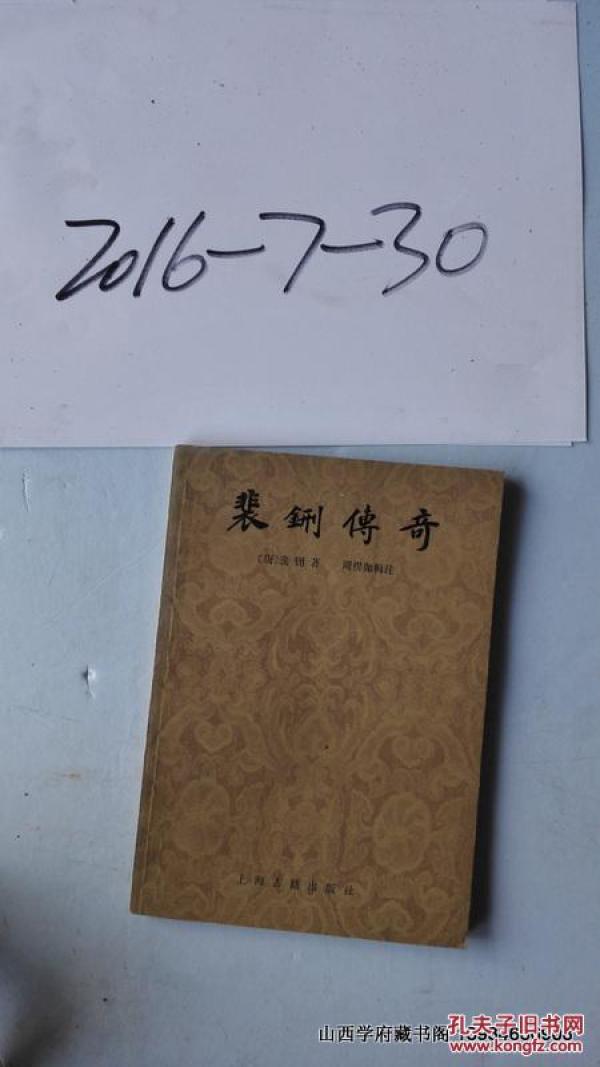 2016-7-30
裴鉶傳奇
〔唐〕裴铏著 周楞伽輯注
上海古籍出版社
山西学府藏书阁
孔夫子旧书网
www.kongfz.com